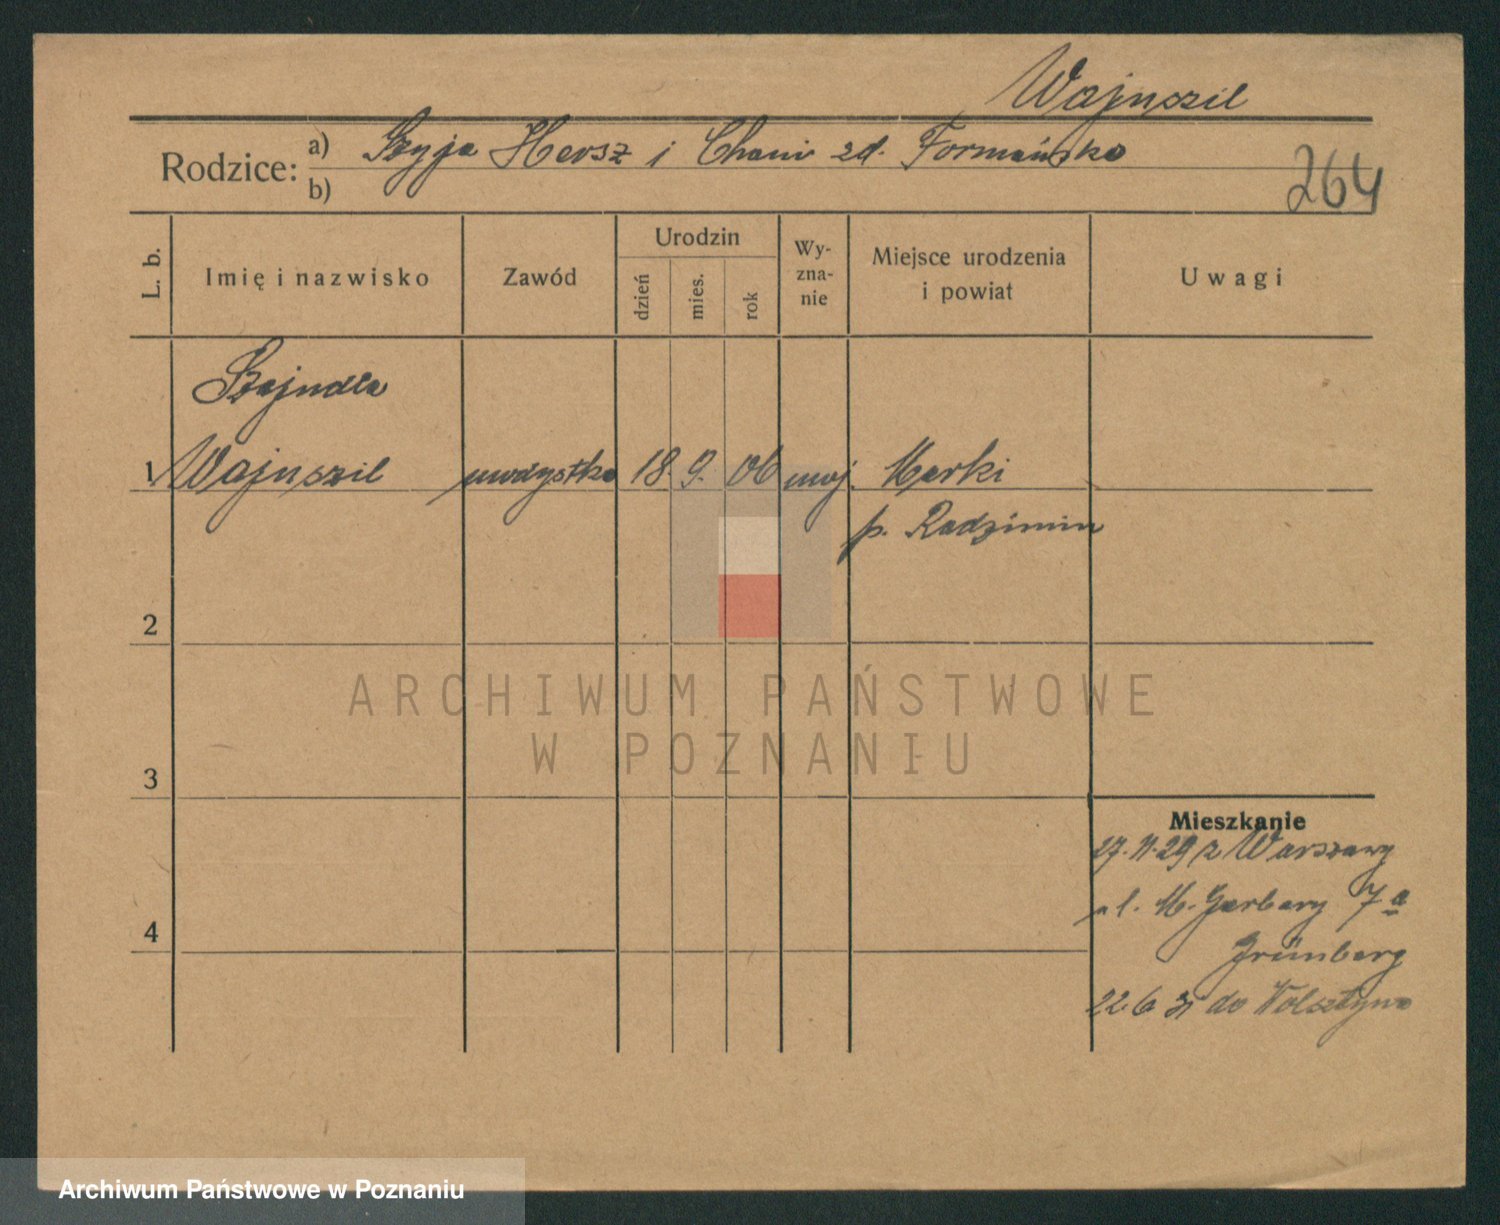 Wajnszil
Rodzice: a) Szyja Hersz i Chani zd. Formańska
b)
264
L. b.
Imię i nazwisko
Zawód
Urodzin
dzień
mies.
rok
Wy-
zna-
nie
Miejsce urodzenia
i powiat
Uwagi
Szajndla
1 Wajnszil modystka 18. 9. 06 moj. Marki
p. Radzimin
2
3
4
Mieszkanie
27.11.29 z Warszawy
ul. M. Garbary 7a
Grünberg
22.6 31 do Wolsztyna
ARCHIWUM PAŃSTWOWE
W POZNANIU
Archiwum Państwowe w Poznaniu